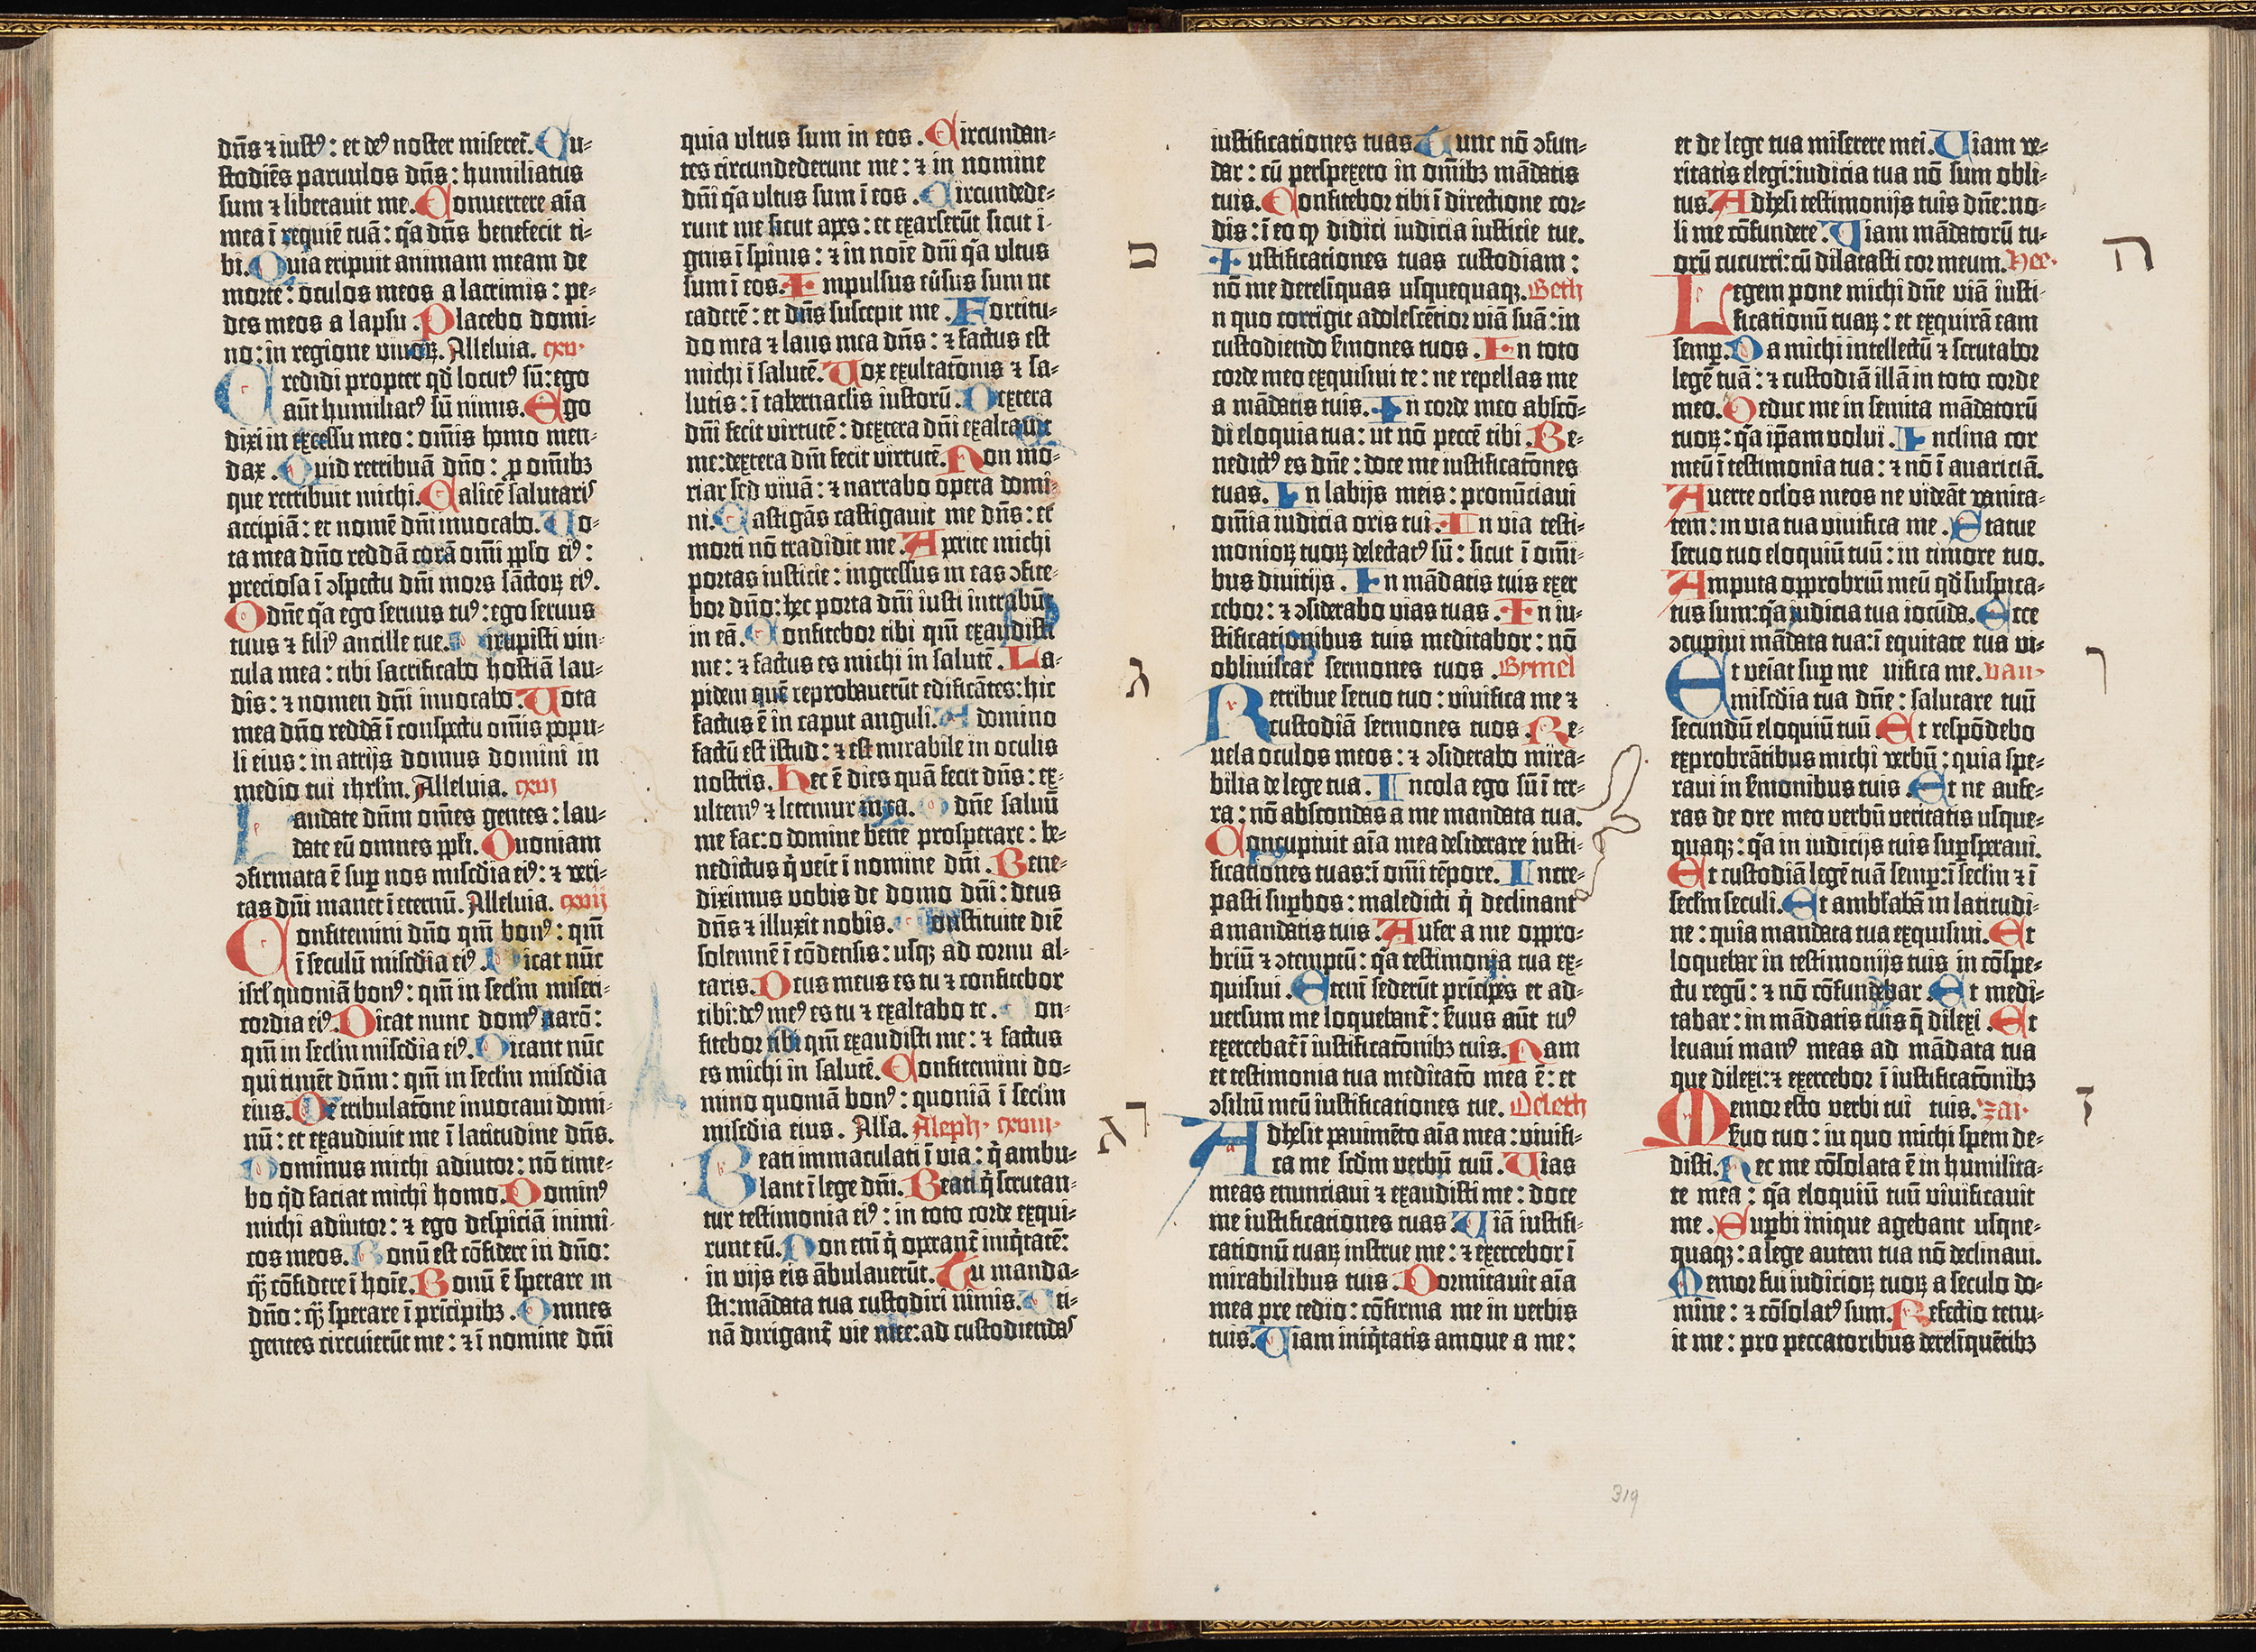 dn̄s ⁊ iustꝰ : et deꝰ noster miseret̃. Cu-
stodiēs paruulos dn̄s : humiliatus
sum ⁊ liberauit me. Conuertere aīa
mea ī requiē tuā : q̄a dn̄s benefecit ti-
bi. Quia eripuit animam meam de
morte : oculos meos a lacrimis : pe-
des meos a lapsu. Placebo domi-
no : in regione viuoꝝ. Alleluia. cxv.
Credidi propter qd̄ locutꝰ sū : ego
aūt humiliatꝰ sū nimis. Ego
dixi in excessu meo : om̄is homo men-
dax. Quid retribuā dn̄o : ꝓ om̄ibꝫ
que retribuit michi. Calicē salutaris
accipiā : et nomē dn̄i inuocabo. Uo-
ta mea dn̄o reddā corā om̄i ppl̄o eiꝰ :
preciosa ī ↄspectu dn̄i mors sāctoꝝ eiꝰ.
O dn̄e q̄a ego seruus tuꝰ : ego seruus
tuus ⁊ filiꝰ ancille tue. Dirupisti vin-
cula mea : tibi sacrificabo hostiā lau-
dis : ⁊ nomen dn̄i inuocabo. Uota
mea dn̄o reddā ī conspectu om̄is popu-
li eius : in atrijs domus domini in
medio tui ihrl̄m. Alleluia. cxvi
Laudate dn̄m om̄es gentes : lau-
date eū omnes ppl̄i. Quoniam
ↄfirmata ē suꝑ nos mis̄cdia eiꝰ : ⁊ veri-
tas dn̄i manet ī eternū. Alleluia. cxvij
Confitemini dn̄o qm̄ bonꝰ : qm̄
ī seculū mis̄cdia eiꝰ. Dicat nūc
isrl̄ quoniā bonꝰ : qm̄ in secl̄m miseri-
cordia eiꝰ. Dicat nunc domꝰ aarō :
qm̄ in secl̄m mis̄cdia eiꝰ. Dicant nūc
qui timēt dn̄m : qm̄ in secl̄m mis̄cdia
eius. De tribulatōne inuocaui domi-
nū : et exaudiuit me ī latitudine dn̄s.
Dominus michi adiutor : nō time-
bo qd̄ faciat michi homo. Dominꝰ
michi adiutor : ⁊ ego despiciā inimi-
cos meos. Bonū est cōfidere in dn̄o :
q̄ꝫ cōfidere ī hoīe. Bonū ē sperare in
dn̄o : q̄ꝫ sperare ī prīcipibꝫ. Omnes
gentes circuierūt me : ⁊ ī nomine dn̄i
quia vltus sum in eos. Circundan-
tes circundederunt me : ⁊ in nomine
dn̄i q̄a vltus sum ī eos. Circundede-
runt me sicut apes : et exarserūt sicut i-
gnis ī spinis : ⁊ in noīe dn̄i q̄a vltus
sum ī eos. Impulsus eūsus sum ut
caderē : et dn̄s suscepit me. Fortitu-
do mea ⁊ laus mea dn̄s : ⁊ factus est
michi ī salutē. Uox exultatōnis ⁊ sa-
lutis : ī tabernaclis iustorū. Dextera
dn̄i fecit virtutē : dextera dn̄i exaltauit
me : dextera dn̄i fecit virtutē. Non mo-
riar sed viuā : ⁊ narrabo opera domi-
ni. Castigās castigauit me dn̄s : et
morti nō tradidit me. Aperite michi
portas iusticie : ingressus in eas ↄfite-
bor dn̄o : hec porta dn̄i iusti intrabūt
in eā. Confitebor tibi qm̄ exaudisti
me : ⁊ factus es michi in salutē. La-
pidem quē reprobauerūt edificātes : hic
factus ē in caput anguli. A domino
factū est istud : ⁊ est mirabile in oculis
nostris. Hec ē dies quā fecit dn̄s : ex-
ultemꝰ ⁊ letemur in ea. O dn̄e saluū
me fac : o domine bene prosperare : be-
nedictus q̇ veit̄ ī nomine dn̄i. Bene-
diximus vobis de domo dn̄i : deus
dn̄s ⁊ illuxit nobis. Constituite diē
solemnē ī cōdensis : usqꝫ ad cornu al-
taris. Deus meus es tu ⁊ confitebor
tibi : deꝰ meꝰ es tu ⁊ exaltabo te. Con-
fitebor tibi qm̄ exaudisti me : ⁊ factus
es michi in salutē. Confitemini do-
mino quoniā bonꝰ : quoniā ī secl̄m
mis̄cdia eius. All̄a. Aleph. cxviii.
Beati immaculati ī via : q̇ ambu-
lant ī lege dn̄i. Beati q̇ scrutan-
tur testimonia eiꝰ : in toto corde exqui-
runt eū. Non em̄ q̇ operant̃ iniq̇tatē :
in vijs eis ābulauerūt. Tu manda-
sti : mādata tua custodiri nimis. Uti-
nā dirigant̃ vie mee : ad custodiendas
iustificationes tuas. Tunc nō ↄfun-
dar : cū perspexero in om̄ibꝫ mādatis
tuis. Confitebor tibi ī directione cor-
dis : ī eo ꝙ didici iudicia iusticie tue.
Iustificationes tuas custodiam :
nō me derelīquas usquequaqꝫ. Beth
ב
n quo corrigit adolescētior viā suā : in
custodiendo s̄mones tuos. In toto
corde meo exquisiui te : ne repellas me
a mādatis tuis. In corde meo abscō-
di eloquia tua : ut nō peccē tibi. Be-
nedictꝰ es dn̄e : doce me iustificatōnes
tuas. In labijs meis : pronūciaui
om̄ia iudicia oris tui. In via testi-
monioꝝ tuoꝝ delectatꝰ sū : sicut ī om̄i-
bus diuitijs. In mādatis tuis exer
cebor : ⁊ ↄsiderabo vias tuas. In iu-
stificationibus tuis meditabor : nō
obliuiscar sermones tuos. Gymel
ג
Retribue seruo tuo : viuifica me ⁊
custodiā sermones tuos. Re-
uela oculos meos : ⁊ ↄsiderabo mira-
bilia de lege tua. Incola ego sū ī ter-
ra : nō abscondas a me mandata tua.
Concupiuit aīa mea desiderare iusti-
ficationes tuas : ī om̄i tēpore. Incre-
pasti suꝑbos : maledicti q̇ declinant
a mandatis tuis. Aufer a me oppro-
briū ⁊ ↄtemptū : q̄a testimonia tua ex-
quisiui. Etenī sederūt prīcipes et ad-
uersum me loquebant̃ : s̄uus aūt tuꝰ
exercebat̃ ī iustificatōnibꝫ tuis. Nam
et testimonia tua meditatō mea ē : et
ↄsiliū meū iustificationes tue. Deleth
ד
Adhesit pauimēto aīa mea : viuifi-
ca me scd̄m verbū tuū. Uias
meas enunciaui ⁊ exaudisti me : doce
me iustificationes tuas. Uiā iustifi-
cationū tuaꝝ instrue me : ⁊ exercebor ī
mirabilibus tuis. Dormitauit aīa
mea pre tedio : cōfirma me in verbis
tuis. Uiam iniq̇tatis amoue a me :
et de lege tua miserere mei. Uiam ve-
ritatis elegi : iudicia tua nō sum obli-
tus. Adhesi testimonijs tuis dn̄e : no-
li me cōfundere. Uiam mādatorū tu-
orū cucurri : cū dilatasti cor meum. Hee.
ה
Legem pone michi dn̄e viā iusti-
ficationū tuaꝝ : et exquirā eam
semꝑ. Da michi intellectū ⁊ scrutabor
legē tuā : ⁊ custodiā illā in toto corde
meo. Deduc me in semita mādatorū
tuoꝝ : q̄a ip̄am volui. Inclina cor
meū ī testimonia tua : ⁊ nō ī auariciā.
Auerte oclos meos ne videāt vanita-
tem : in via tua viuifica me. Statue
seruo tuo eloquiū tuū : in timore tuo.
Amputa opprobriū meū qd̄ suspica-
tus sum : q̄a iudicia tua iocūda. Ecce
ↄcupiui mādata tua : ī equitate tua vi-
uifica me. vau.
ו
Et veīat suꝑ me
mis̄cdia tua dn̄e : salutare tuū
secundū eloquiū tuū. Et respōdebo
exprobrātibus michi verbū : quia spe-
raui in s̄monibus tuis. Et ne aufe-
ras de ore meo verbū veritatis usque-
quaqꝫ : q̄a in iudicijs tuis suꝑsperaui.
Et custodiā legē tuā semꝑ : ī secl̄m ⁊ ī
secl̄m seculi. Et ambl̄abā in latitudi-
ne : quia mandata tua exquisiui. Et
loquebar in testimonijs tuis in cōspe-
ctu regū : ⁊ nō cōfundebar. Et medi-
tabar : in mādatis tuis q̄ dilexi. Et
leuaui manꝰ meas ad mādata tua
que dilexi : ⁊ exercebor ī iustificatōnibꝫ
tuis. zai.
ז
Memor esto verbi tui
s̄uo tuo : in quo michi spem de-
disti. Nec me cōsolata ē in humilita-
te mea : q̄a eloquiū tuū viuificauit
me. Suꝑbi inique agebant usque-
quaqꝫ : a lege autem tua nō declinaui.
Memor fui iudicioꝝ tuoꝝ a seculo do-
mine : ⁊ cōsolatꝰ sum. Refectio tenu-
it me : pro peccatoribus derelīquētibꝫ
319